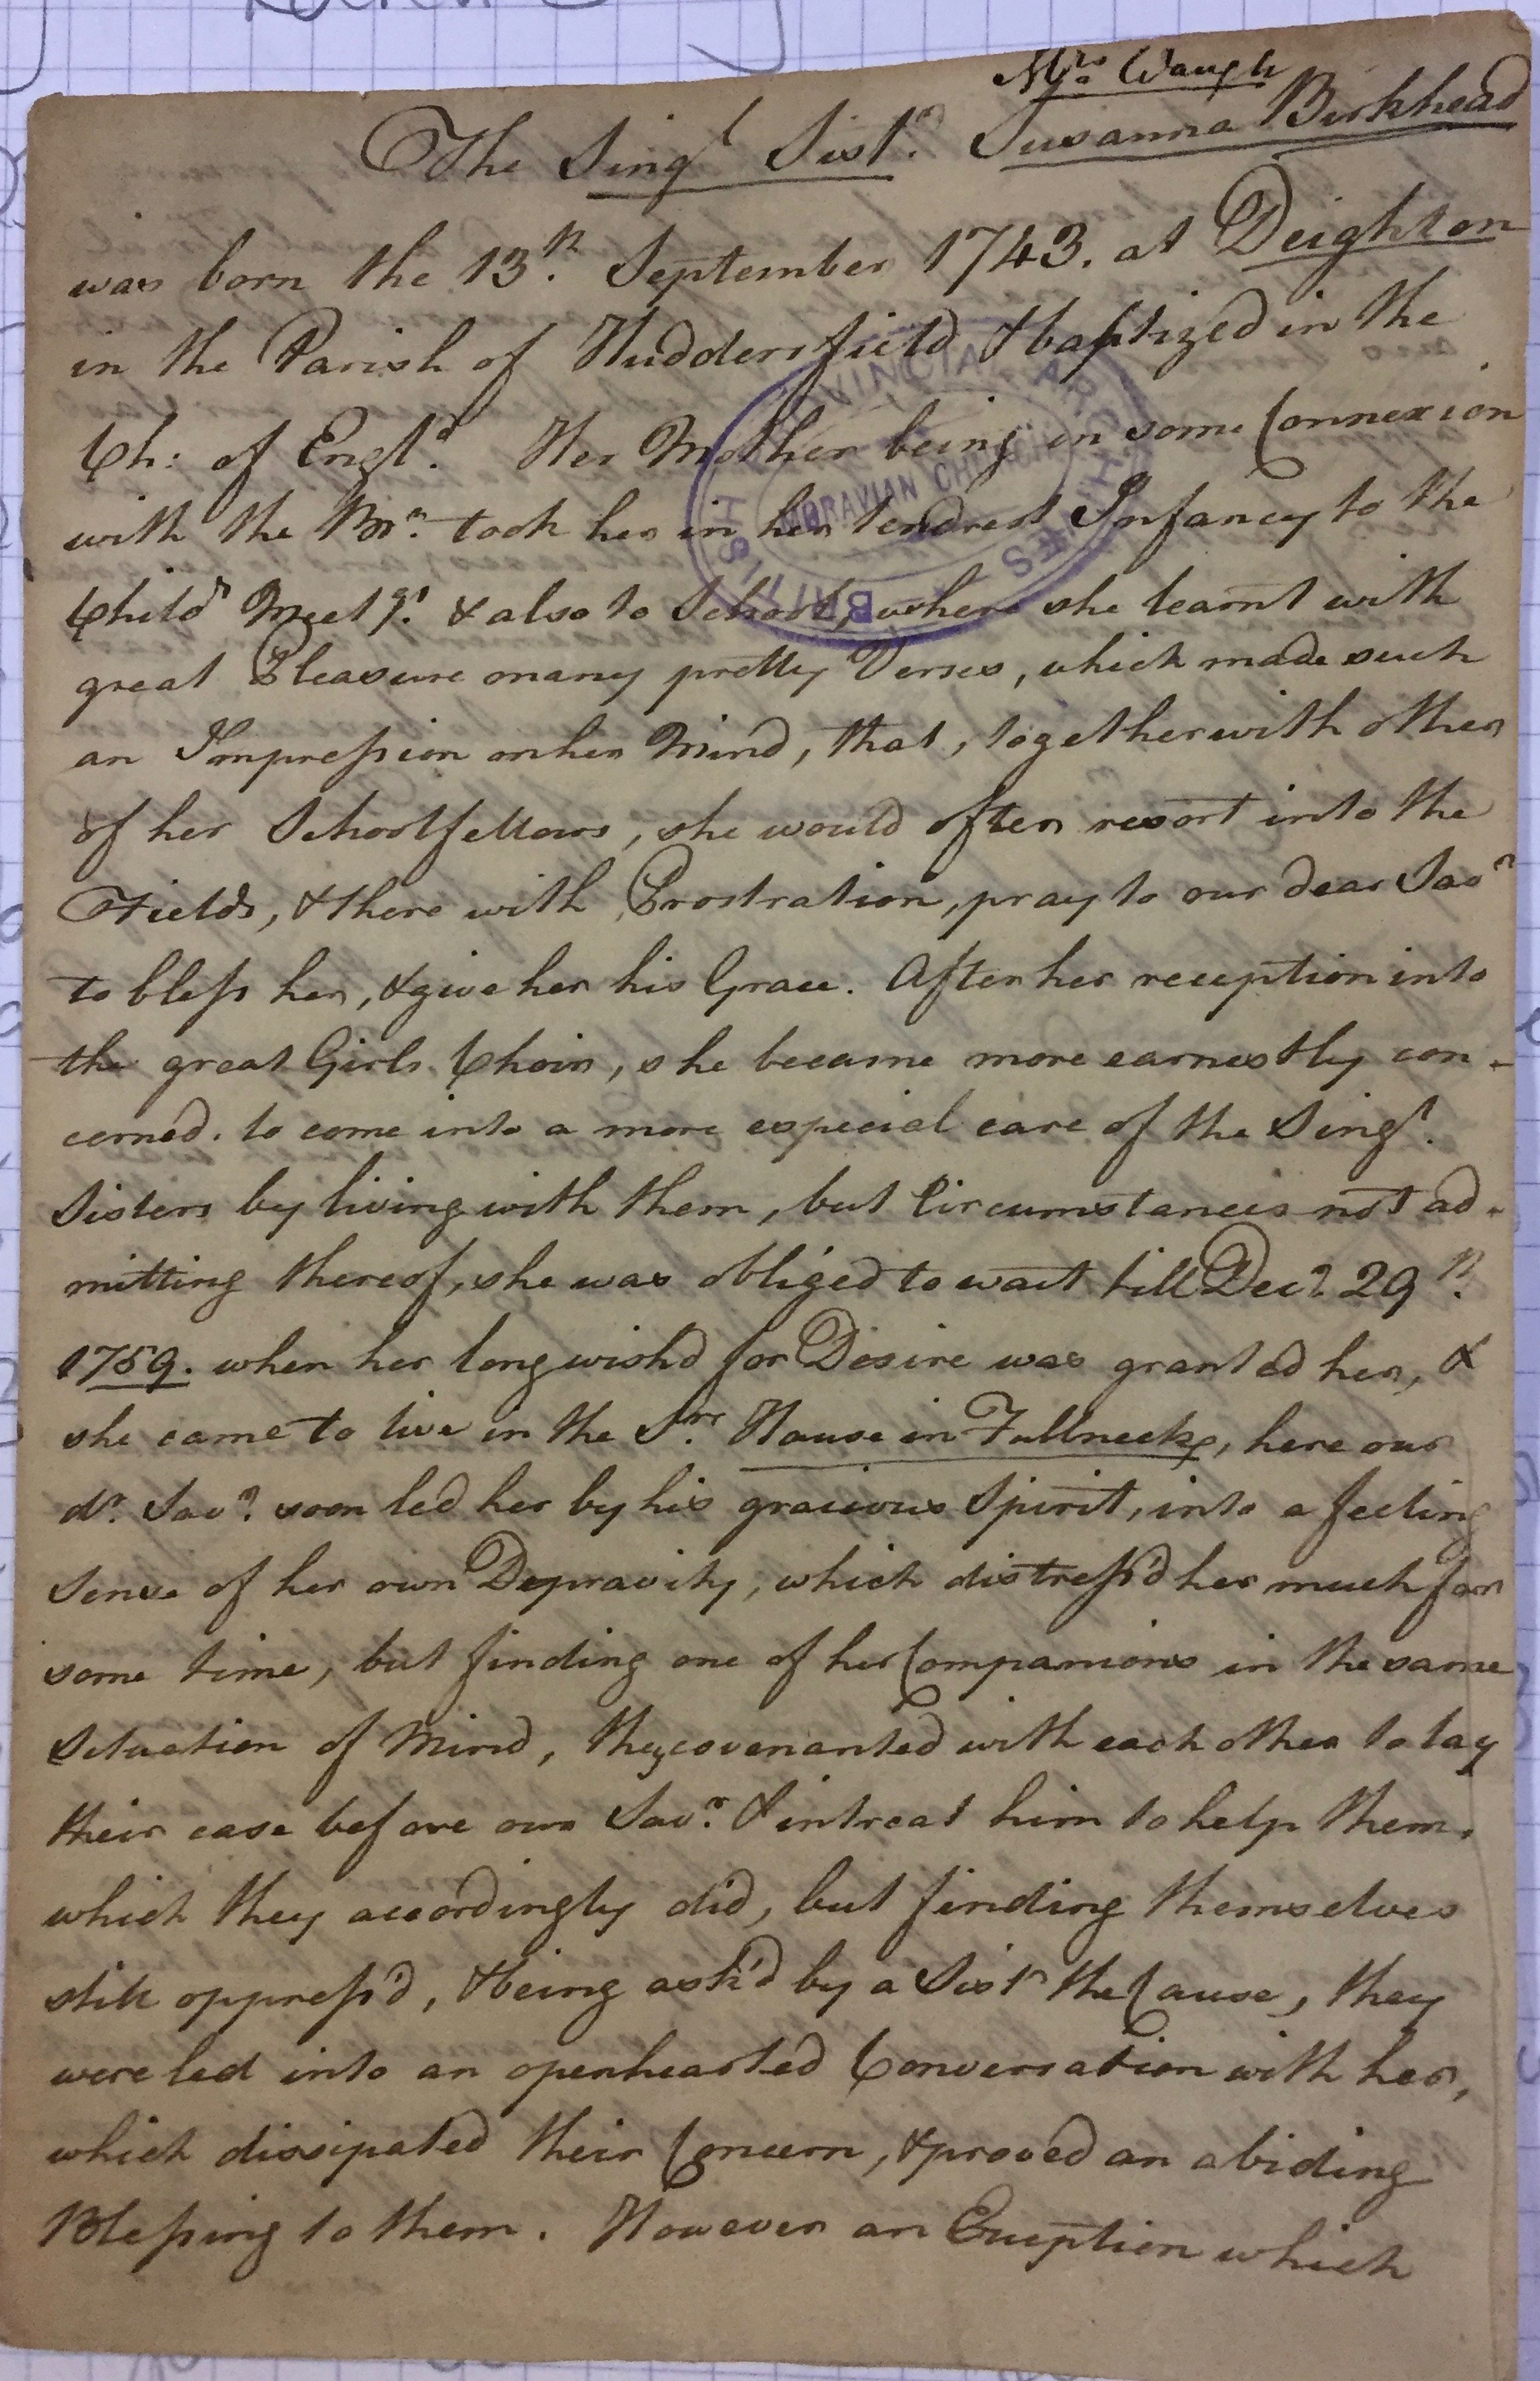 Mrs. Waugh
The Singl Sistr. Susanna Birkhead
was born the 13th. September 1743. at Deighton
in the Parish of Huddersfield & baptized in the
Ch: of Engld. Her Mother being in some Connexion
with the Brn. took her in her tendrest Infancy to the
Childn Meetgs. & also to School, where she learnt with
great Pleasure many pretty Verses, which made such
an Impression on her Mind, that, together with other
of her Schoolfellows, she would often resort into the
Fields, & there with Prostration, pray to our dear Savr
to bless her, & give her his Grace. After her reception into
the great Girls Choir, she became more earnestly con-
cerned. to come into a more especial care of the Singl.
Sisters by living with them, but Circumstances not ad-
mitting thereof, she was obliged to wait till Decr. 29th.
1759. when her long wish'd for Desire was granted her, &
she came to live in the Srs. House in Fullneck, here our
dr. Savr. soon led her by his gracious Spirit, into a feeling
Sense of her own Depravity, which distress'd her much for
some time, but finding one of her Companions in the same
Situation of Mind, they covenanted with each other to lay
their case before our Savr. & intreat him to help them.
which they accordingly did, but finding themselves
still oppress'd, & being ask'd by a Sistr the Cause, they
were led into an openhearted Conversation with her,
which dissipated their Concern, & proved an abiding
Blessing to them. However an Eruption which
BRITISH PROVINCIAL ARCHIVES
MORAVIAN CHURCH